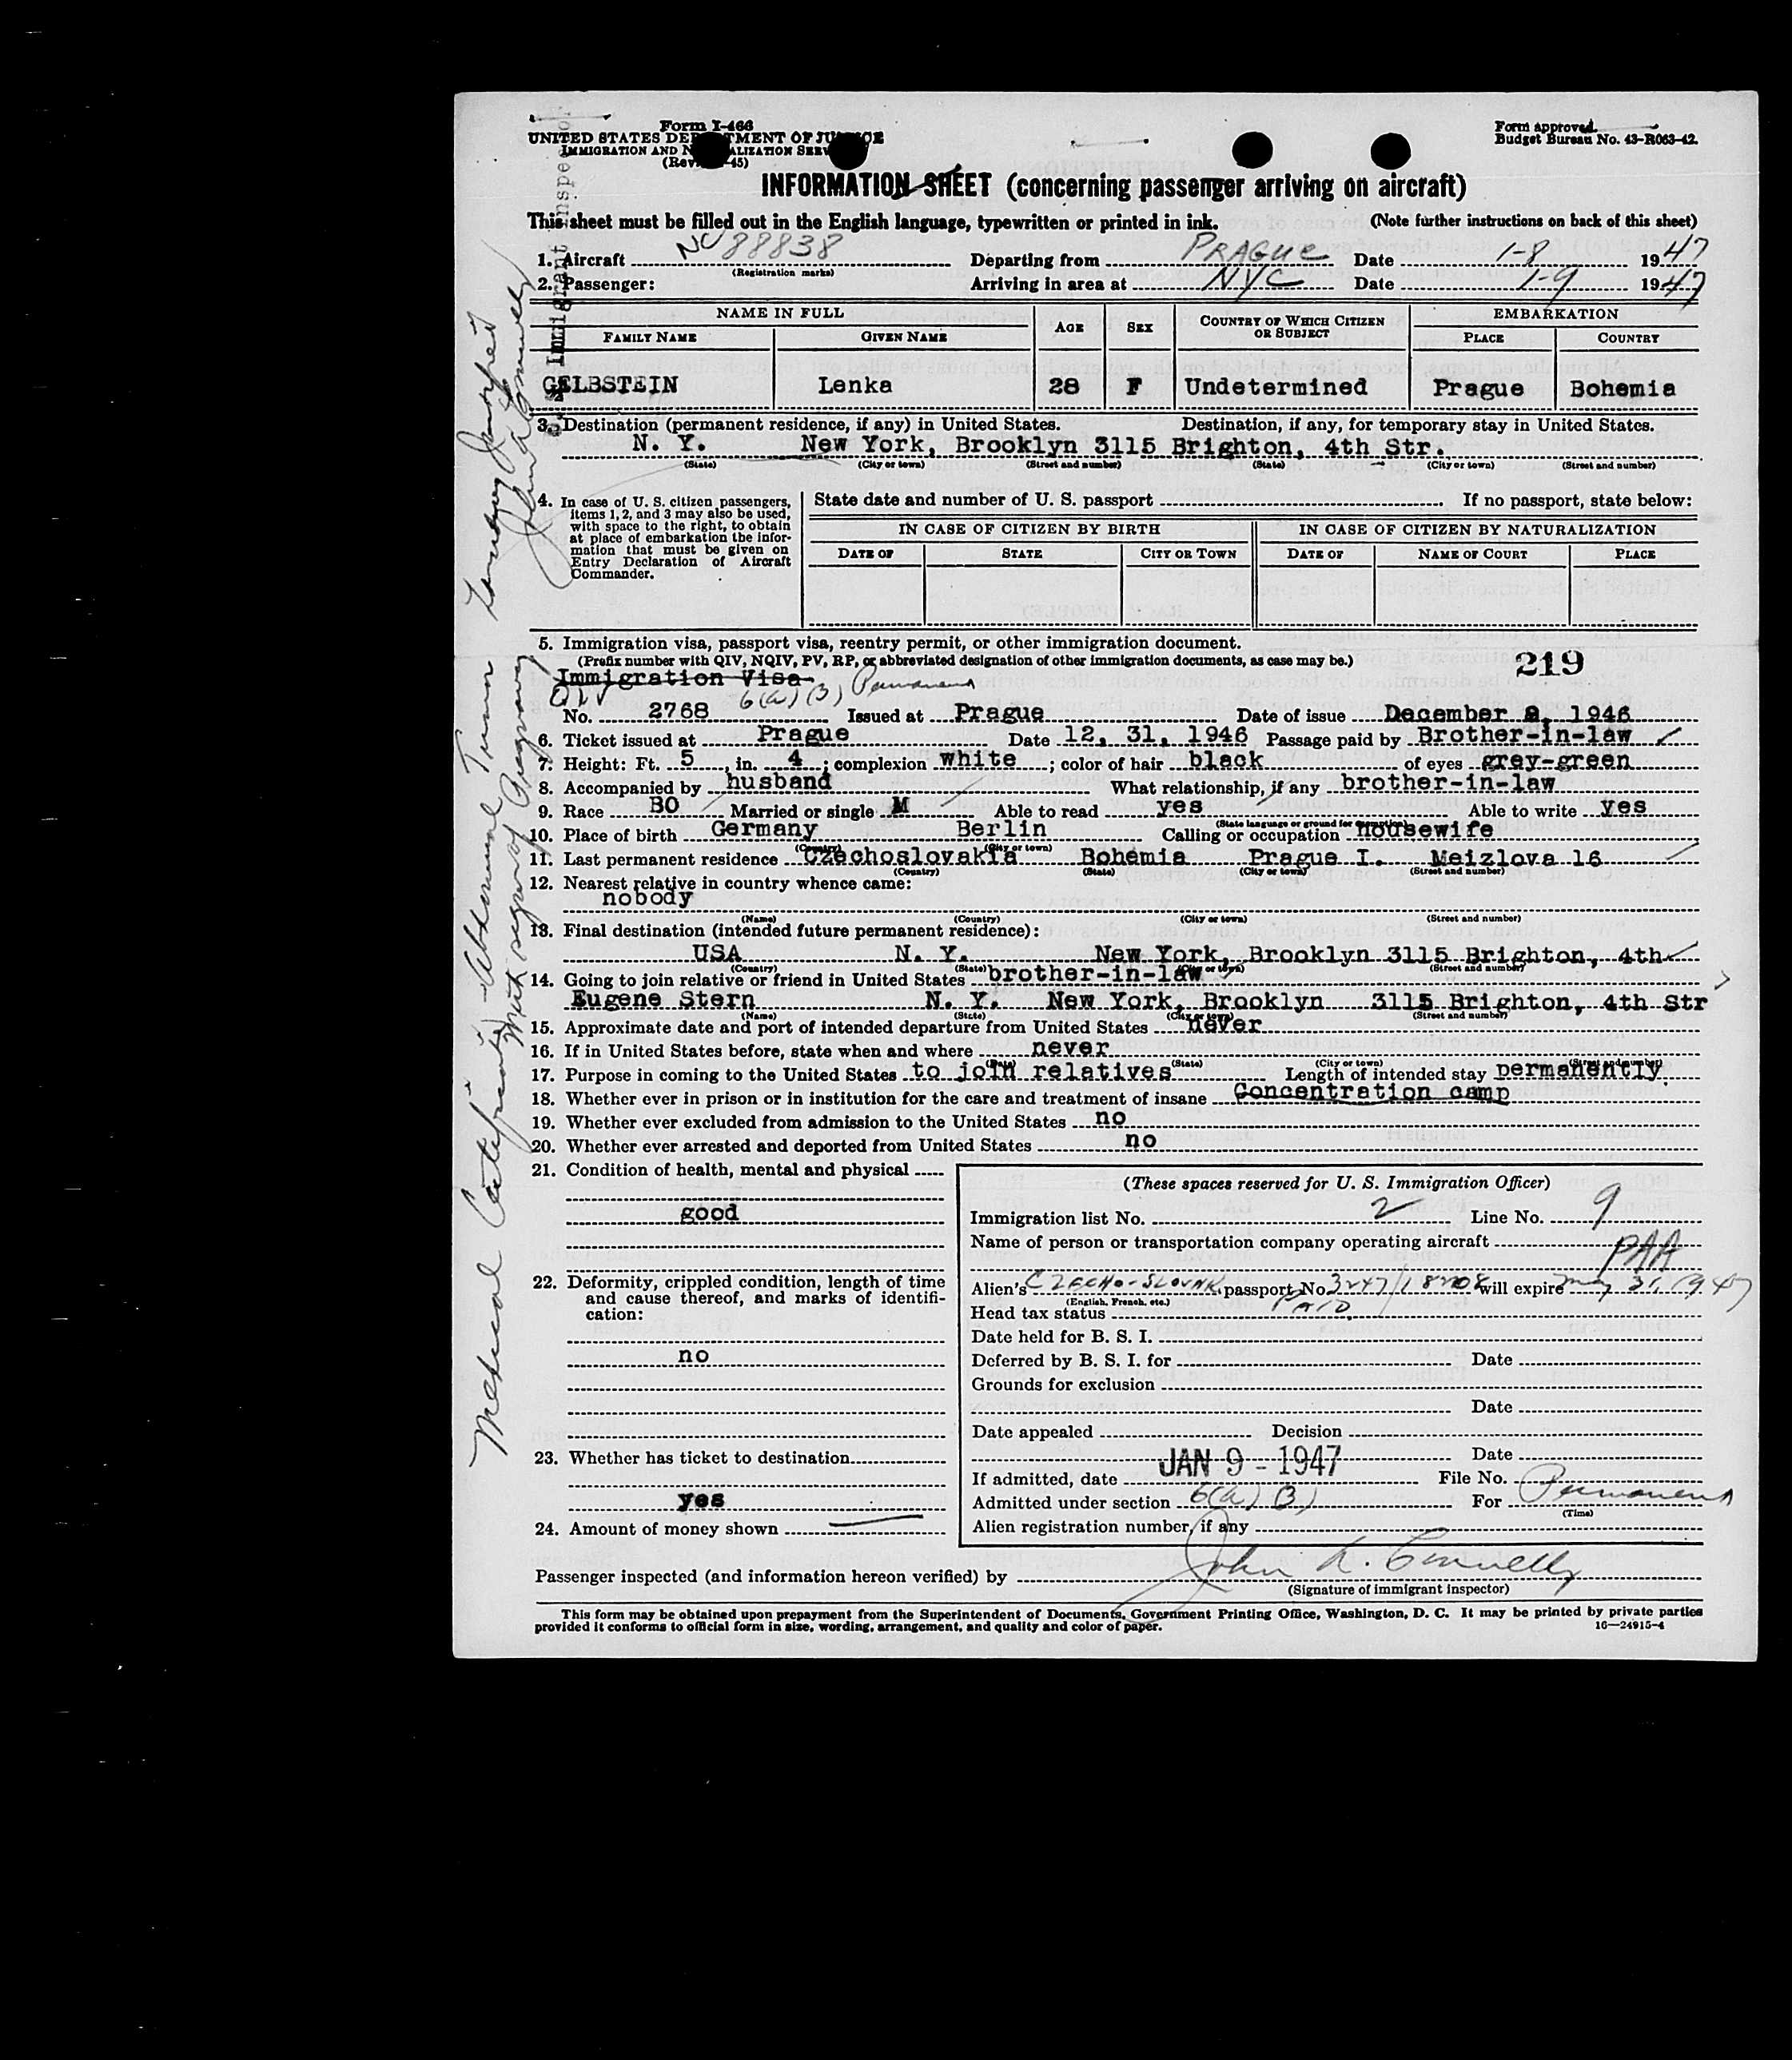 Form I-466
UNITED STATES DEPARTMENT OF JUSTICE
IMMIGRATION AND NATURALIZATION SERVICE
(Rev. -45)
Form approved.
Budget Bureau No. 43-R063-42.
INFORMATION SHEET (concerning passenger arriving on aircraft)
This sheet must be filled out in the English language, typewritten or printed in ink. (Note further instructions on back of this sheet)
1. Aircraft NC 88838 Departing from PRAGUE Date 1-8 1947
(Registration marks)
2. Passenger: Arriving in area at NYC Date 1-9 1947
NAME IN FULL AGE SEX COUNTRY OF WHICH CITIZEN OR SUBJECT EMBARKATION
FAMILY NAME GIVEN NAME PLACE COUNTRY
GELBSTEIN Lenka 28 F Undetermined Prague Bohemia
3. Destination (permanent residence, if any) in United States. Destination, if any, for temporary stay in United States.
N. Y. New York, Brooklyn 3115 Brighton, 4th Str.
(State) (City or town) (Street and number) (State) (City or town) (Street and number)
4. In case of U. S. citizen passengers, items 1, 2, and 3 may also be used, with space to the right, to obtain at place of embarkation the information that must be given on Entry Declaration of Aircraft Commander.
State date and number of U. S. passport If no passport, state below:
IN CASE OF CITIZEN BY BIRTH IN CASE OF CITIZEN BY NATURALIZATION
DATE OF STATE CITY OR TOWN DATE OF NAME OF COURT PLACE
5. Immigration visa, passport visa, reentry permit, or other immigration document.
(Prefix number with QIV, NQIV, PV, RP, or abbreviated designation of other immigration documents, as case may be.) 219
Immigration Visa
QIV 6(a)(3) Permanent
No. 2768 Issued at Prague Date of issue December 2, 1946
6. Ticket issued at Prague Date 12, 31, 1946 Passage paid by Brother-in-law
7. Height: Ft. 5, in. 4; complexion white; color of hair black of eyes grey-green
8. Accompanied by husband What relationship, if any brother-in-law
9. Race BO Married or single M Able to read yes Able to write yes
(State language or ground for exemption)
10. Place of birth Germany Berlin Calling or occupation housewife
(Country) (City or town)
11. Last permanent residence Czechoslovakia Bohemia Prague I. Meizlova 16
(Country) (State) (City or town) (Street and number)
12. Nearest relative in country whence came:
nobody
(Name) (Country) (City or town) (Street and number)
13. Final destination (intended future permanent residence):
USA N. Y. New York, Brooklyn 3115 Brighton, 4th
(Country) (State) (City or town) (Street and number)
14. Going to join relative or friend in United States brother-in-law
Eugene Stern N. Y. New York, Brooklyn 3115 Brighton, 4th Str
(Name) (State) (City or town) (Street and number)
15. Approximate date and port of intended departure from United States never
16. If in United States before, state when and where never
(Date) (State) (City or town) (Street and number)
17. Purpose in coming to the United States to join relatives Length of intended stay permanently.
18. Whether ever in prison or in institution for the care and treatment of insane Concentration camp
19. Whether ever excluded from admission to the United States no
20. Whether ever arrested and deported from United States no
21. Condition of health, mental and physical
good
22. Deformity, crippled condition, length of time and cause thereof, and marks of identification:
no
23. Whether has ticket to destination
yes
24. Amount of money shown
(These spaces reserved for U. S. Immigration Officer)
Immigration list No. 2 Line No. 9
Name of person or transportation company operating aircraft
PAA
Alien's CZECHO-SLOVAK passport No. 3247/18208 will expire May 31, 1947
(English, French, etc.)
Head tax status PAID
Date held for B. S. I.
Deferred by B. S. I. for Date
Grounds for exclusion
Date
Date appealed Decision
Date
If admitted, date JAN 9 - 1947 File No.
Admitted under section 6(a)(3) For Permanent
(Time)
Alien registration number, if any
Passenger inspected (and information hereon verified) by John A. Connelly
(Signature of immigrant inspector)
This form may be obtained upon prepayment from the Superintendent of Documents, Government Printing Office, Washington, D. C. It may be printed by private parties
provided it conforms to official form in size, wording, arrangement, and quality and color of paper. 16—24915-4
Medical Certificate - Abdominal Tumor
most signs of Pregnancy
Immigrant Inspector